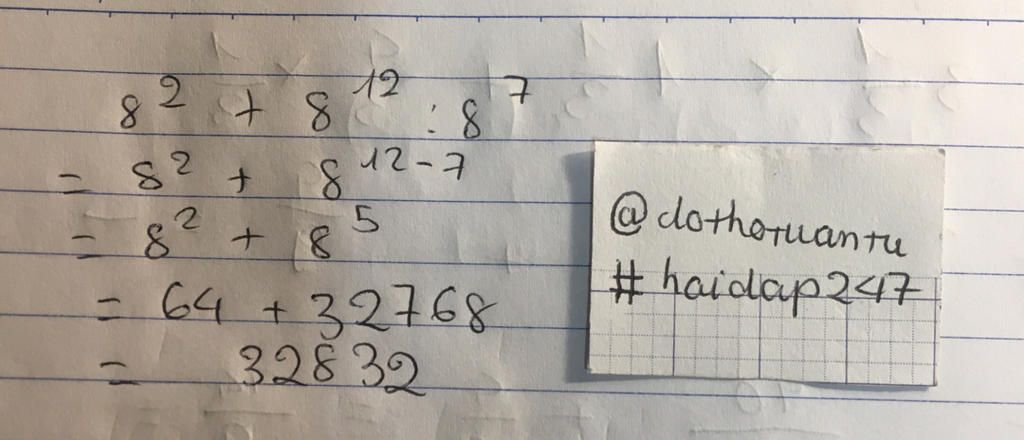 8² + 8¹² : 8⁷
= 8² + 8¹²⁻⁷
= 8² + 8⁵
= 64 + 32768
= 32832
@dothotuantu
# haidap247